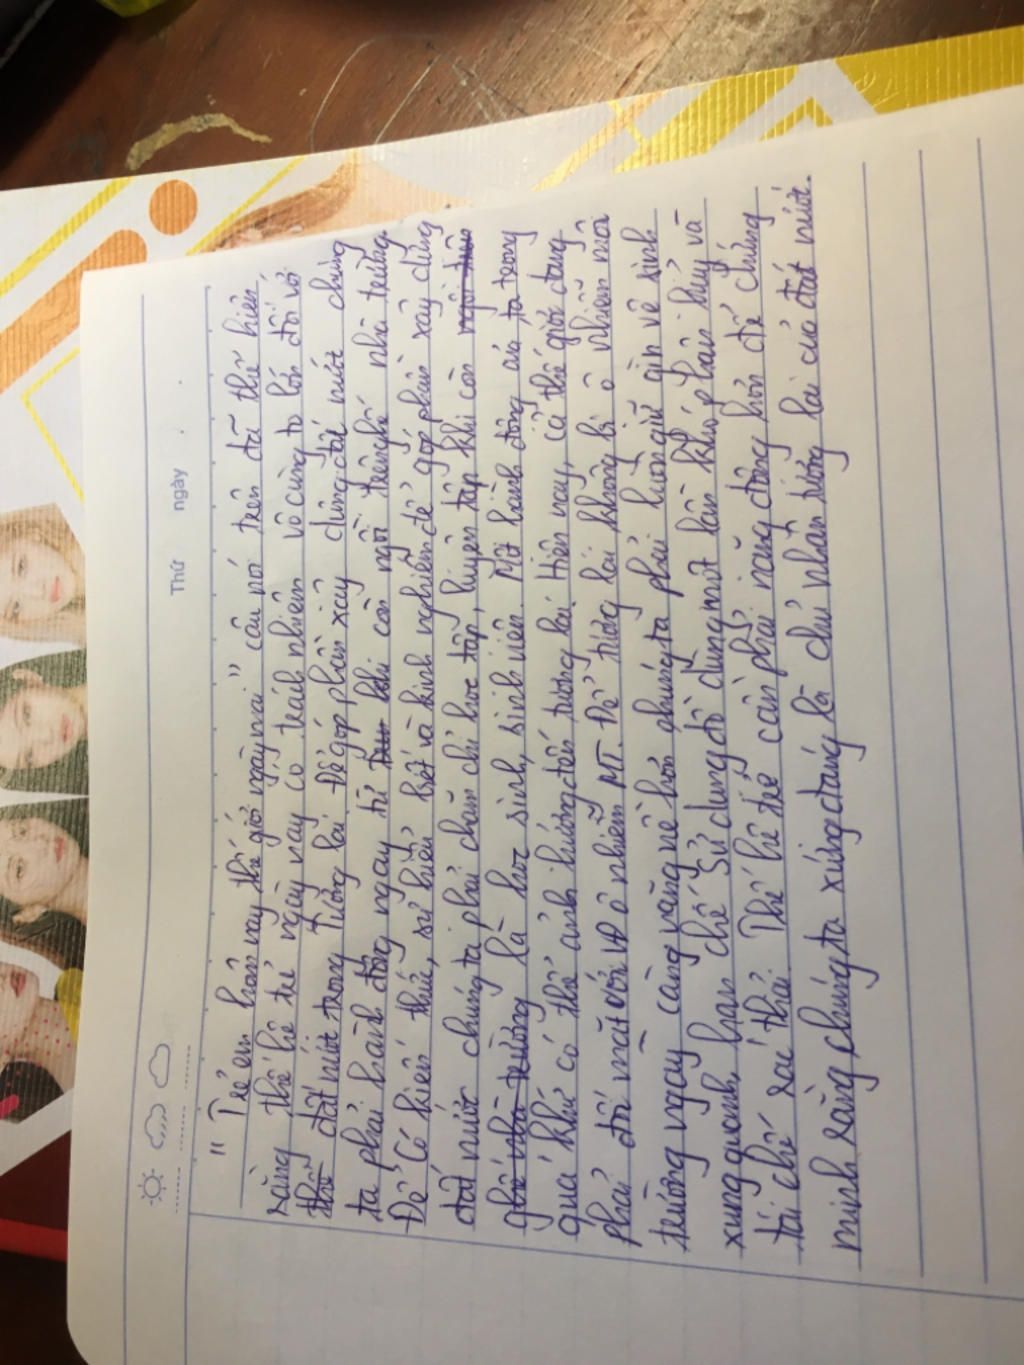 Thứ ngày
" Trẻ em hôm nay thế giới ngày mai " câu nói trên đã thể hiện
rằng thế hệ trẻ ngày nay có trách nhiệm vô cùng to lớn đối với
thế đất nước trong tương lai. Để góp phần xây dựng đất nước chúng
ta phải hành động ngay từ khi còn ngồi trên ghế nhà trường.
Để có kiến thức, sự hiểu biết và kinh nghiệm để góp phần xây dựng
đất nước chúng ta phải chăm chỉ học tập, luyện tập khi còn ngồi trên
ghế nhà trường là học sinh, sinh viên. Một hành động của ta trong
quá khứ có thể ảnh hưởng đến tương lai. Hiện nay, cả thế giới đang
phải đối mặt với VĐ ô nhiễm MT. Để tương lai không bị ô nhiễm môi
trường ngày càng nặng nề hơn chúng ta phải luôn giữ gìn vệ sinh
xung quanh, hạn chế sử dụng đồ dùng một lần khó phân huỷ và
tái chế rác thải. Thế hệ trẻ cần phải năng động hơn để chứng
minh rằng chúng ta xứng đáng là chủ nhân tương lai của đất nước.